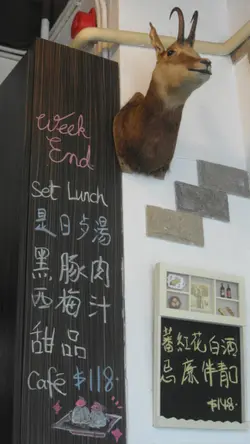 Week
End
Set Lunch
是日与湯
黑豚肉
西梅汁
甜品
Café $118.
蕃紅花白酒
忌廉伴青口
$148.